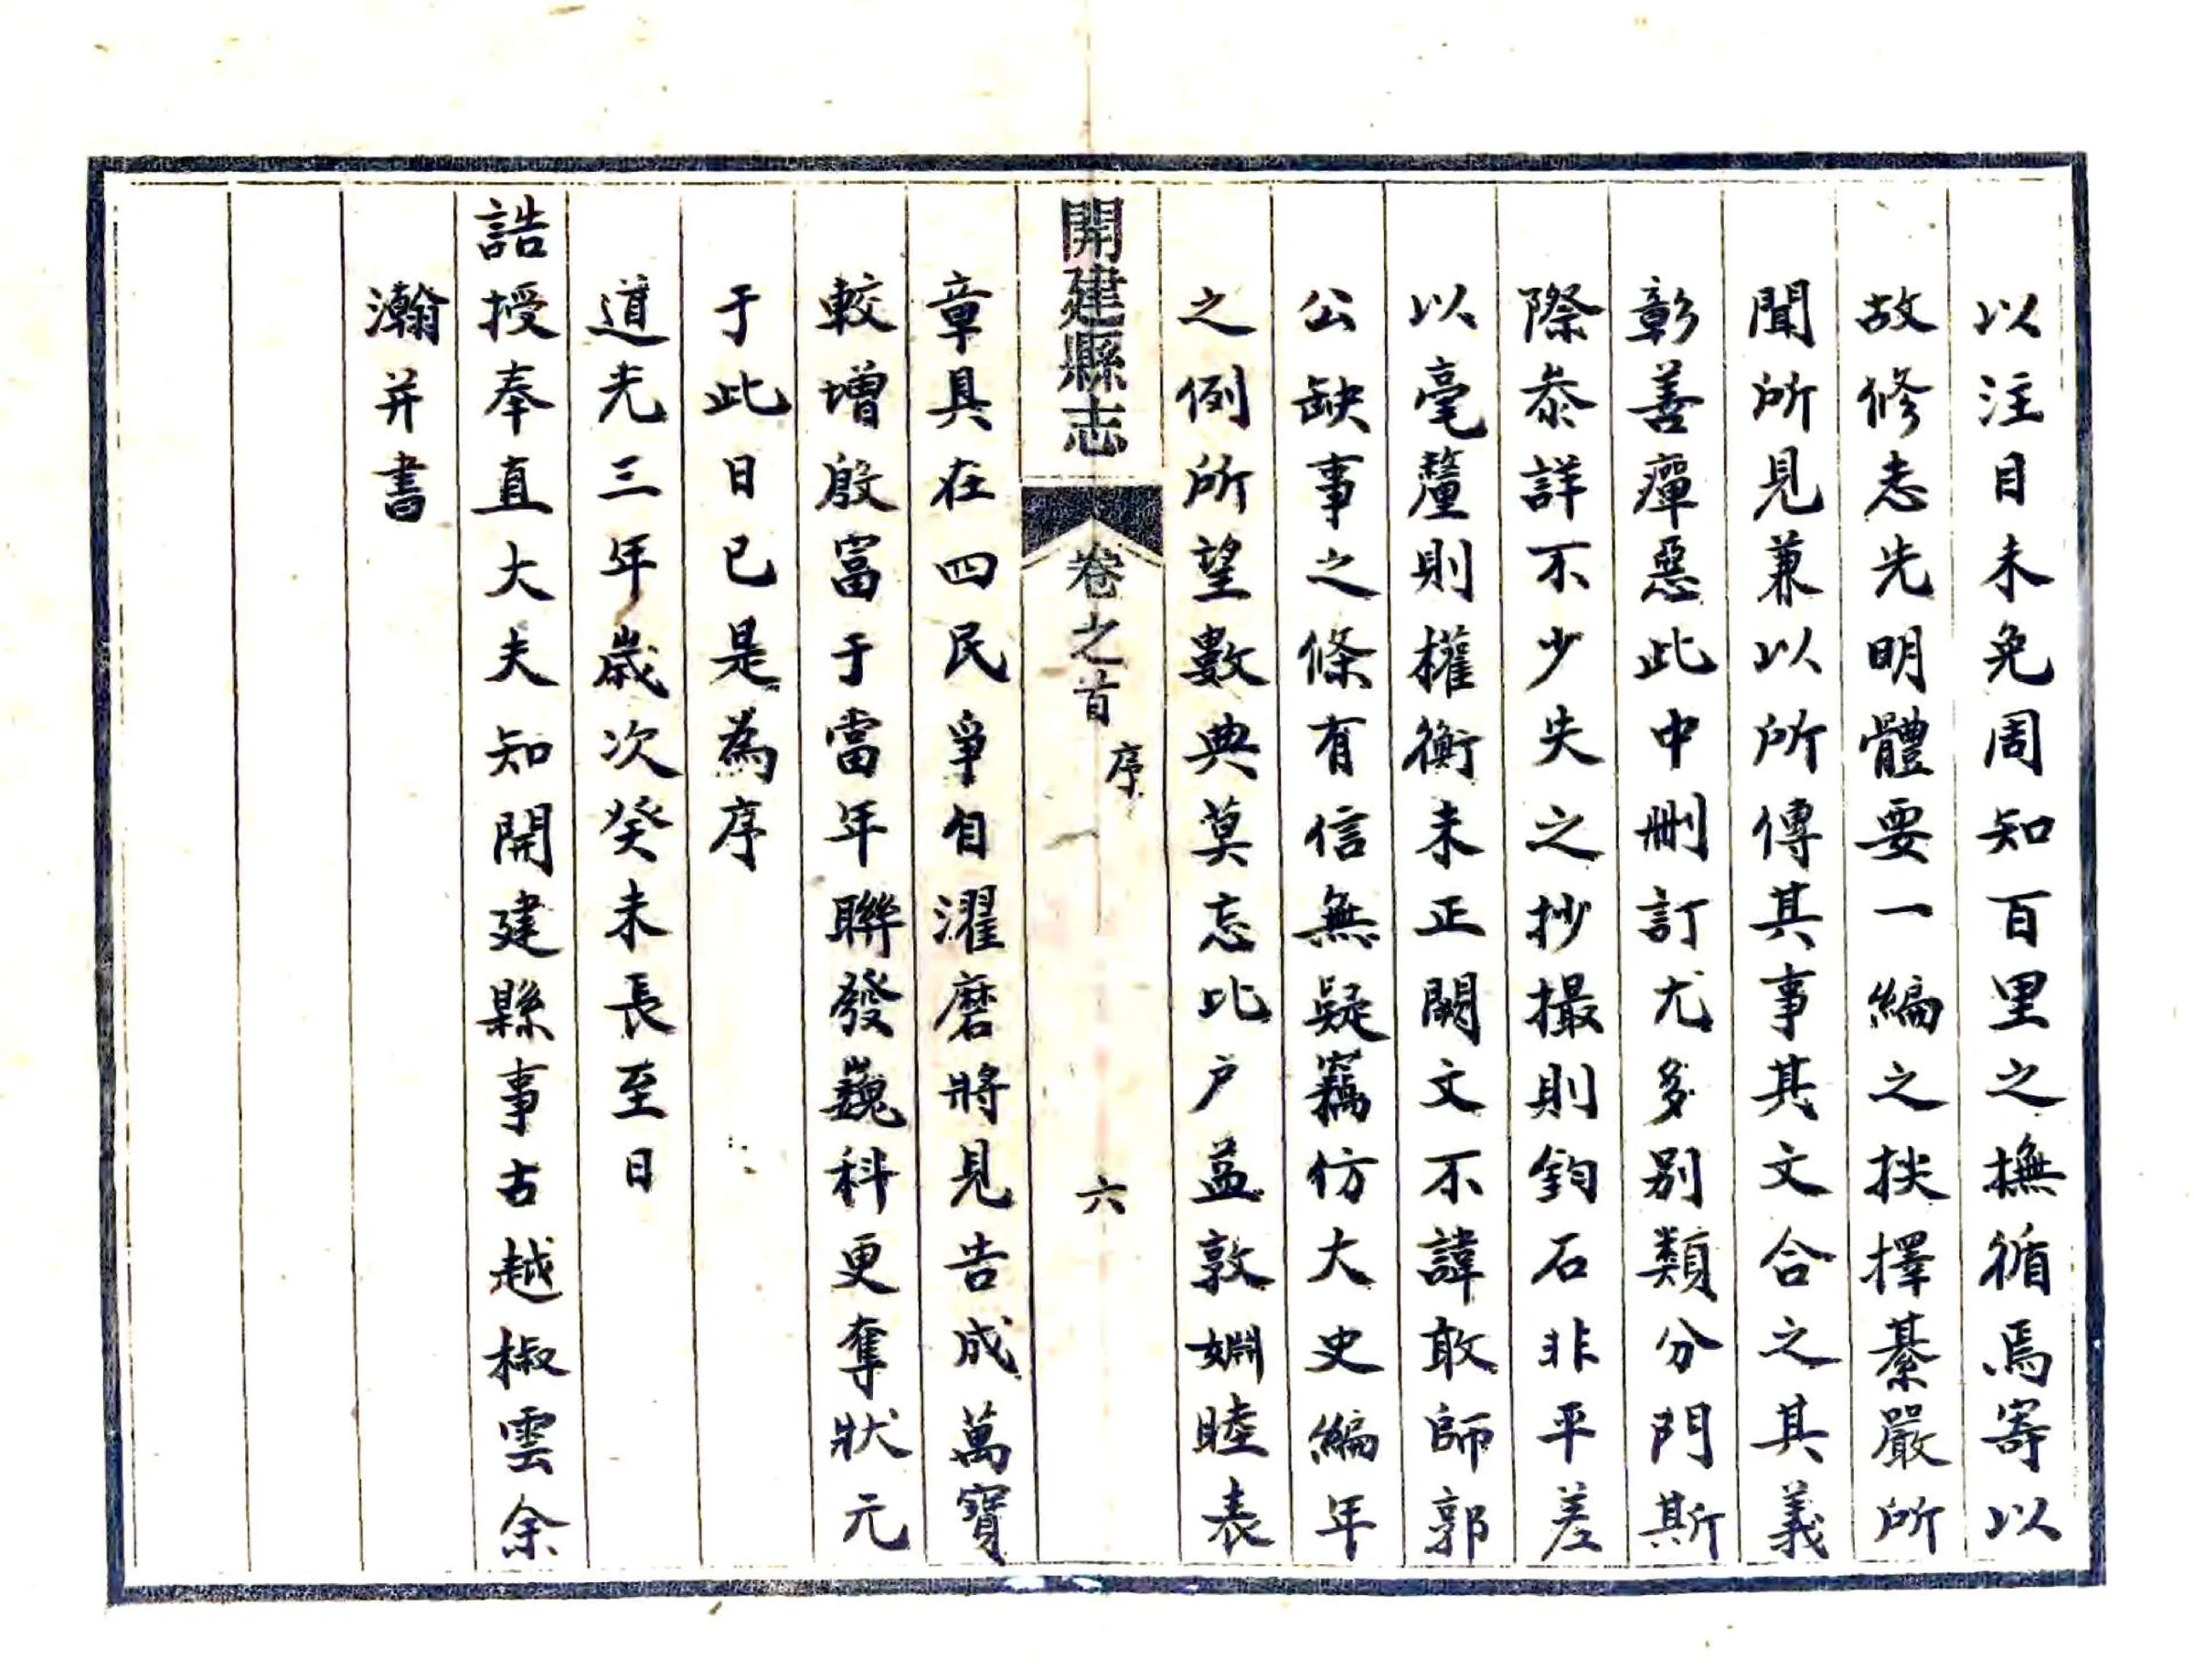 以注目未免周知百里之撫循焉寄以
故修志先明體要一編之抉擇綦嚴所
聞所見兼以所傳其事其文合之其義
彰善癉惡此中刪訂尤多別類分門斯
際叅詳不少失之抄撮則鈞石非平差
以毫釐則權衡未正闕文不諱敢師郭
公缺事之條有信無疑竊仿大史編年
之例所望數典莫忘比户益敦婣睦表
開建縣志
卷之首
序
六
章具在四民爭自濯磨將見告成萬寶
較增殷富于當年聯發巍科更奪狀元
于此日已是為序
道光三年歲次癸未長至日
誥授奉直大夫知開建縣事古越椒雲余
瀚并書